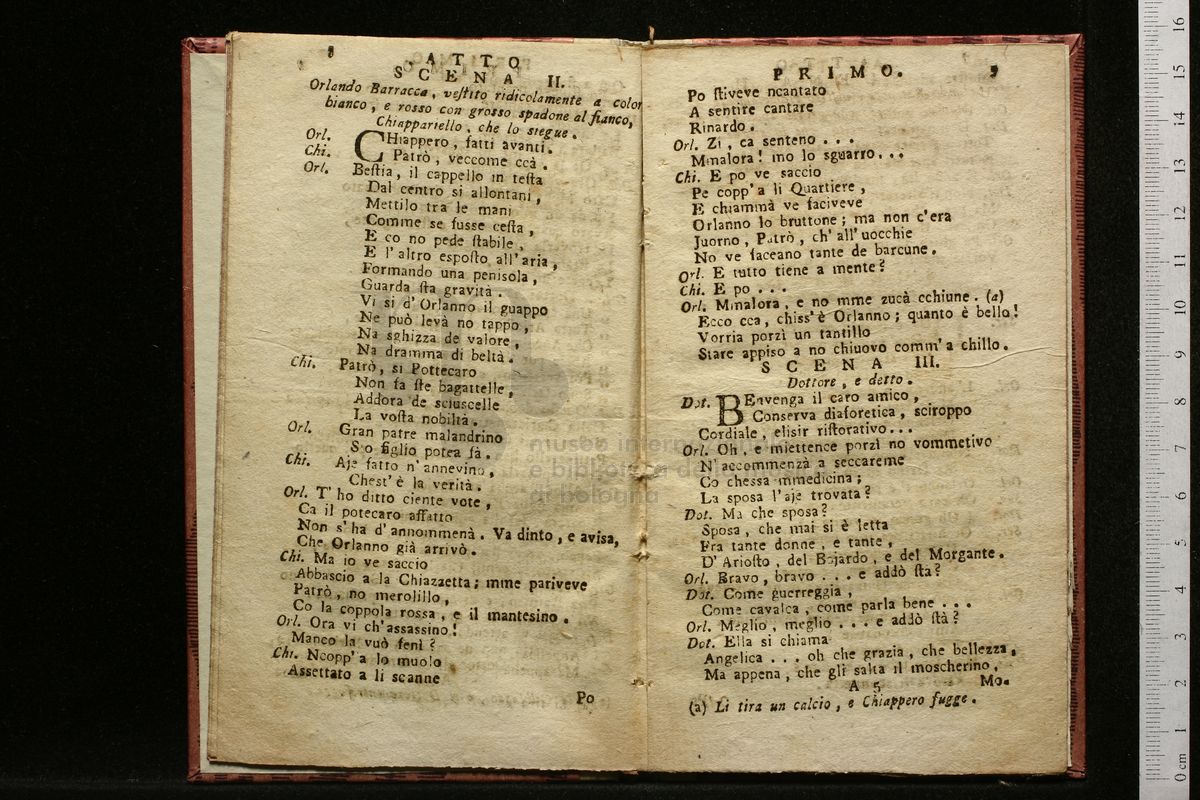 8
ATTO
SCENA II.
Orlando Barracca, veſtito ridicolamente a color
bianco, e rosso con grosso spadone al fianco,
Chiappariello, che lo siegue.
Orl. CHiappero, fatti avanti.
Chi. Patrò, veccome ccà.
Orl. Beſtia, il cappello in teſta
Dal centro si allontani,
Mettilo tra le mani
Comme se fusse ceſta,
E co no pede ſtabile,
E l'altro espoſto all'aria,
Formando una penisola,
Guarda ſta gravità.
Vi si d'Orlanno il guappo
Ne può levà no tappo,
Na sghizza de valore,
Na dramma di beltà.
Chi. Patrò, si Pottecaro
Non fa ſte bagattelle,
Addora de sciuscelle
La voſta nobiltà.
Orl. Gran patre malandrino
Sto figlio potea fà.
Chi. Aje fatto n'annevino,
Cheſt'è la verità.
Orl. T'ho ditto ciente vote,
Ca il potecaro affatto
Non s'ha d'annommenà. Va dinto, e avisa,
Che Orlanno già arrivò.
Chi. Ma io ve saccio
Abbascio a la Chiazzetta; mme pariveve
Patrò, no merolillo,
Co la coppola rossa, e il mantesino.
Orl. Ora vi ch'assassino!
Manco la vuò fenì?
Chi. Ncopp'a lo muolo
Assettato a li scanne
Po
PRIMO. 9
Po ſtiveve ncantato
A sentire cantare
Rinardo.
Orl. Zi, ca senteno...
Mmalora! mo lo sguarro...
Chi. E po ve saccio
Pe copp'a li Quartiere,
E chiammà ve faciveve
Orlanno lo bruttone; ma non c'era
Juorno, Patrò, ch'all'uocchie
No ve faceano tante de barcune.
Orl. E tutto tiene a mente?
Chi. E po...
Orl. Mmalora, e no mme zucà cchiune. (a)
Ecco cca, chiss'è Orlanno; quanto è bello!
Vorria porzì un tantillo
Stare appiso a no chiuovo comm'a chillo.
SCENA III.
Dottore, e detto.
Dot. BEnvenga il caro amico,
Conserva diaforetica, sciroppo
Cordiale, elisir riſtorativo...
Orl. Oh, e miettence porzì no vommetivo
N'accommenzà a seccareme
Co chessa mmedicina;
La sposa l'aje trovata?
Dot. Ma che sposa?
Sposa, che mai si è letta
Fra tante donne, e tante,
D'Arioſto, del Bojardo, e del Morgante.
Orl. Bravo, bravo... e addò ſta?
Dot. Come guerreggia,
Come cavalca, come parla bene...
Orl. Meglio, meglio... e addò ſtà?
Dot. Ella si chiama
Angelica... oh che grazia, che bellezza,
Ma appena, che gli salta il moscherino,
A 5 Mo-
(a) Li tira un calcio, e Chiappero fugge.
museo internazionale
e biblioteca della musica
di bologna
0 cm 1 2 3 4 5 6 7 8 9 10 11 12 13 14 15 16